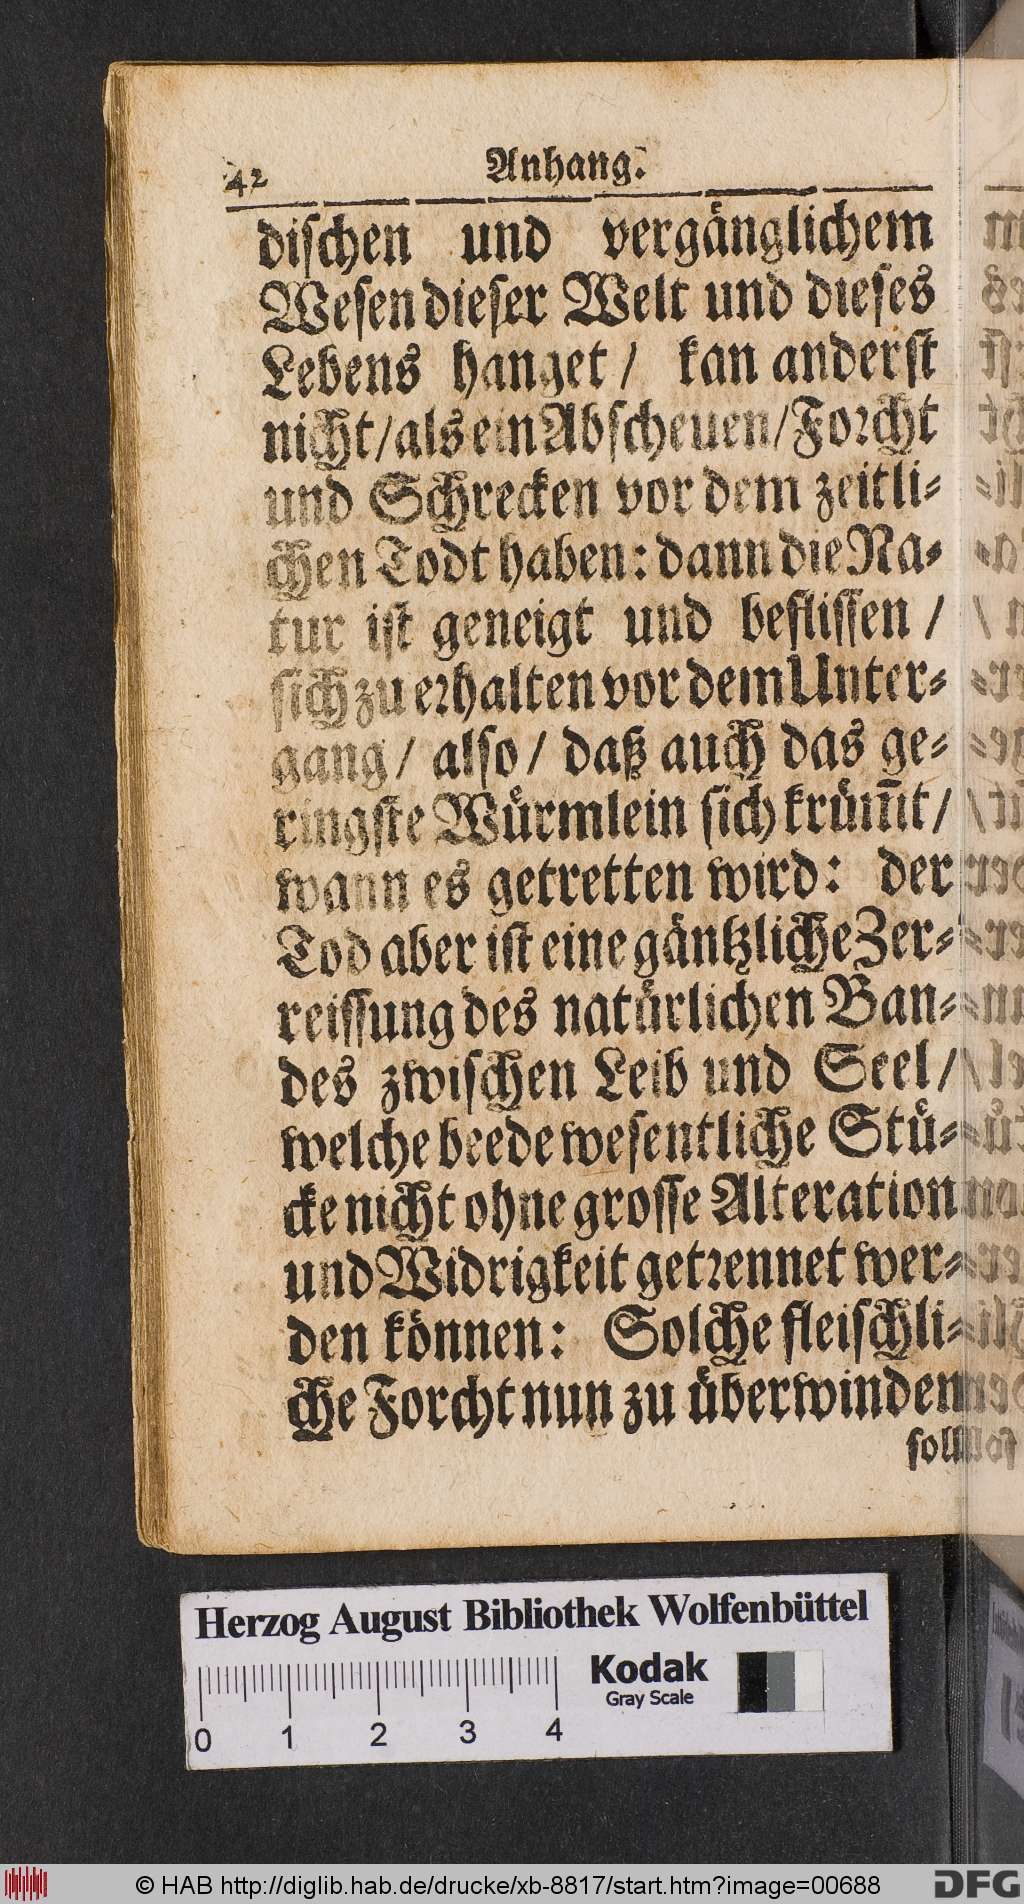 42
Anhang.
dischen und vergänglichem
Wesen dieser Welt und dieses
Lebens hanget / kan anderst
nicht / als ein Abscheuen / Forcht
und Schrecken vor dem zeitli-
chen Todt haben: dann die Na-
tur ist geneigt und beflissen /
sich zu erhalten vor dem Unter-
gang / also / daß auch das ge-
ringste Würmlein sich krüm̅t /
wann es getretten wird: der
Tod aber ist eine gäntzliche Zer-
reissung des natürlichen Ban-
des zwischen Leib und Seel /
welche beede wesentliche Stü-
cke nicht ohne grosse Alteration
und Widrigkeit getrennet wer-
den können: Solche fleischli-
che Forcht nun zu überwinden
soll
Herzog August Bibliothek Wolfenbüttel
Kodak
Gray Scale
0 1 2 3 4
© HAB http://diglib.hab.de/drucke/xb-8817/start.htm?image=00688
DFG